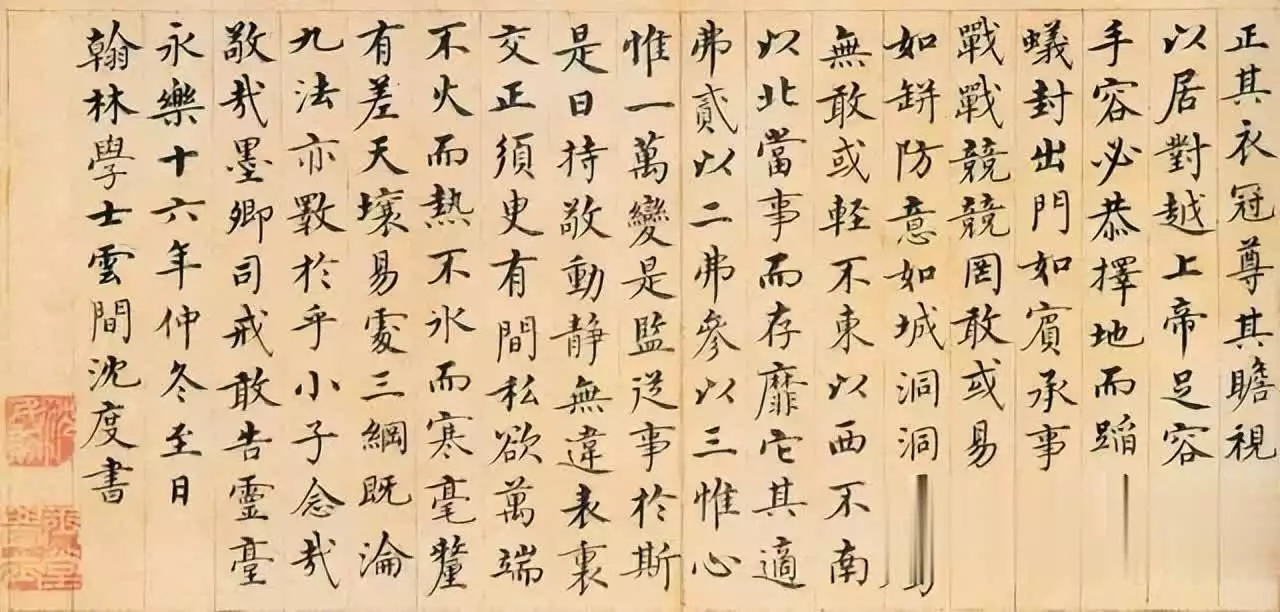 正其衣冠尊其瞻視
以居對越上帝足容
手容必恭擇地而蹈
蟻封出門如賓承事
戰戰競競罔敢或易
如缾防意如城洞洞
無敢或輕不東以西不南
以北當事而存靡它其適
弗貳以二弗參以三惟心
惟一萬變是監從事於斯
是曰持敬動静無違表裏
交正須臾有間私欲萬端
不火而熱不氷而寒毫釐
有差天壤易處三綱既淪
九法亦斁於乎小子念哉
敬哉墨卿司戒敢告靈臺
永樂十六年仲冬至日
翰林學士雲間沈度書